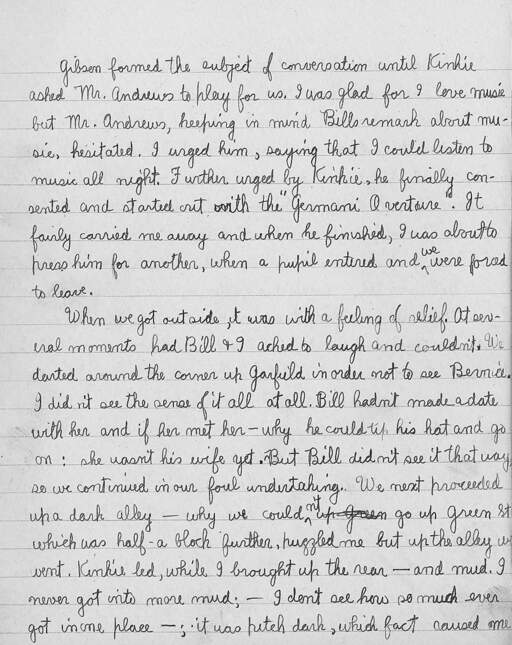 Gibson formed the subject of conversation until Kinkie
asked Mr. Andrews to play for us. I was glad for I love music
but Mr. Andrews, keeping in mind Bills remark about mu-
sic, hesitated. I urged him, saying that I could listen to
music all night. Further urged by Kinkie, he finally con-
sented and started out with the "Germani Overture". It
fairly carried me away and when he finished, I was about to
press him for another, when a pupil entered and we were forced
to leave.
When we got outside, it was with a feeling of relief. At sev-
eral moments had Bill & I ached to laugh and couldn't. We
darted around the corner up Garfield in order not to see Bernice.
I did n't see the sense of it all at all. Bill hadn't made a date
with her and if her met her – why he could tip his hat and go
on : she wasn't his wife yet. But Bill did n't see it that way
so we continued in our foul undertaking. We next proceeded
up a dark alley — why we couldn't up Green go up Green St
which was half-a block further, puzzled me but up the alley we
went. Kinkie led, while I brought up the rear — and mud. I
never got into more mud; — I don't see how so much ever
got in one place — ; it was pitch dark, which fact caused me